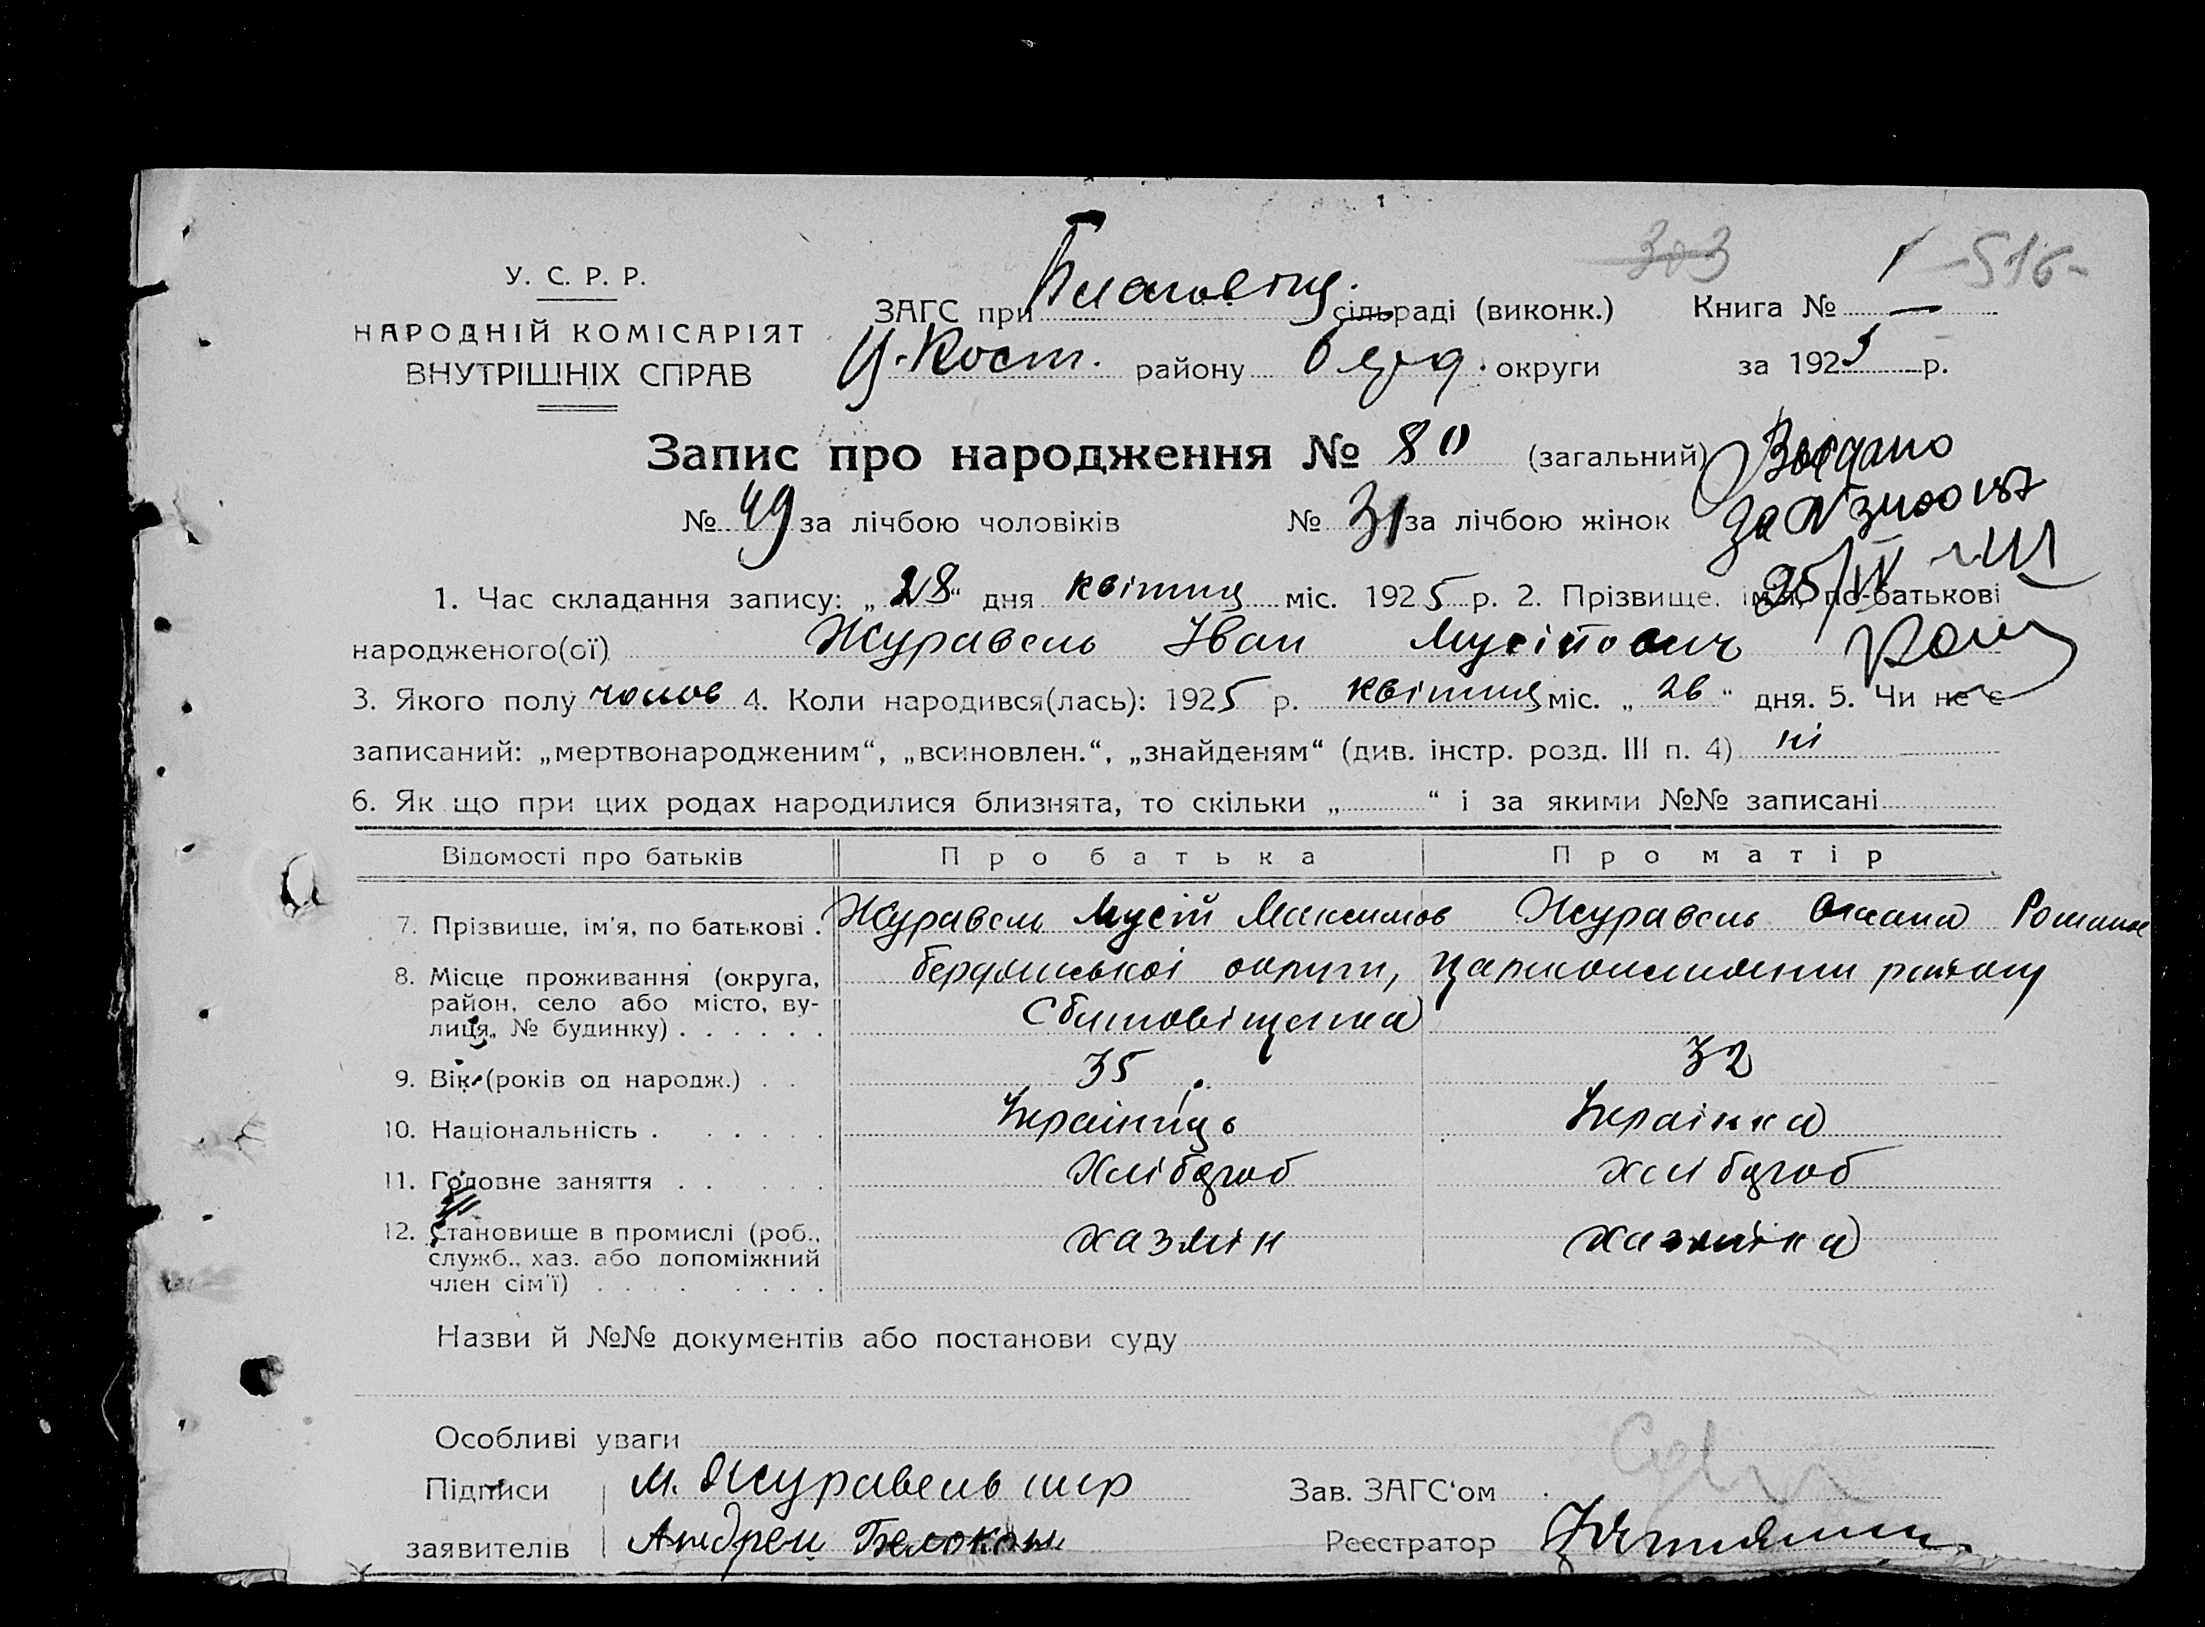 303 -516-
У. С. Р. Р.
НАРОДНІЙ КОМІСАРІЯТ
ВНУТРІШНІХ СПРАВ
ЗАГС при Благовіщ. сільраді (виконк.) Книга № 1
Ц. Кост. району Берд. округи за 1925 р.
Запис про народження № 80 (загальний)
№ 49 за лічбою чоловіків № 31 за лічбою жінок
Видано
за №
25/IV
1. Час складання запису: „28“ дня квітня міс. 1925 р. 2. Прізвище, ім'я, по-батькові
народженого(ої) Журавель Іван Мусійович
3. Якого полу чолов 4. Коли народився(лась): 1925 р. квітня міс. „26“ дня. 5. Чи не є
записаний: „мертвонародженим“, „всиновлен.“, „знайденям“ (див. інстр. розд. III п. 4) ні
6. Як що при цих родах народилися близнята, то скільки „ “ і за якими №№ записані
Відомості про батьків Про батька Про матір
7. Прізвище, ім'я, по батькові . Журавель Мусій Максимов Журавель Оксана Романов
8. Місце проживання (округа, район, село або місто, вулиця, № будинку) . . . . . . Бердянської округи, Царикостянтин району
с Благовіщенка
9. Вік (років од народж.) . . 35 32
10. Національність . . . . . . Українець Українка
11. Головне заняття . . . . . Хлібороб хлібороб
12. Становище в промислі (роб., служб., хаз. або допоміжний член сім'ї) . . . . . . . . хазяїн хазяїка
Назви й №№ документів або постанови суду
Особливі уваги
Підписи М. Журавель Зав. ЗАГС'ом
заявителів Андрей Белоконь Реєстратор